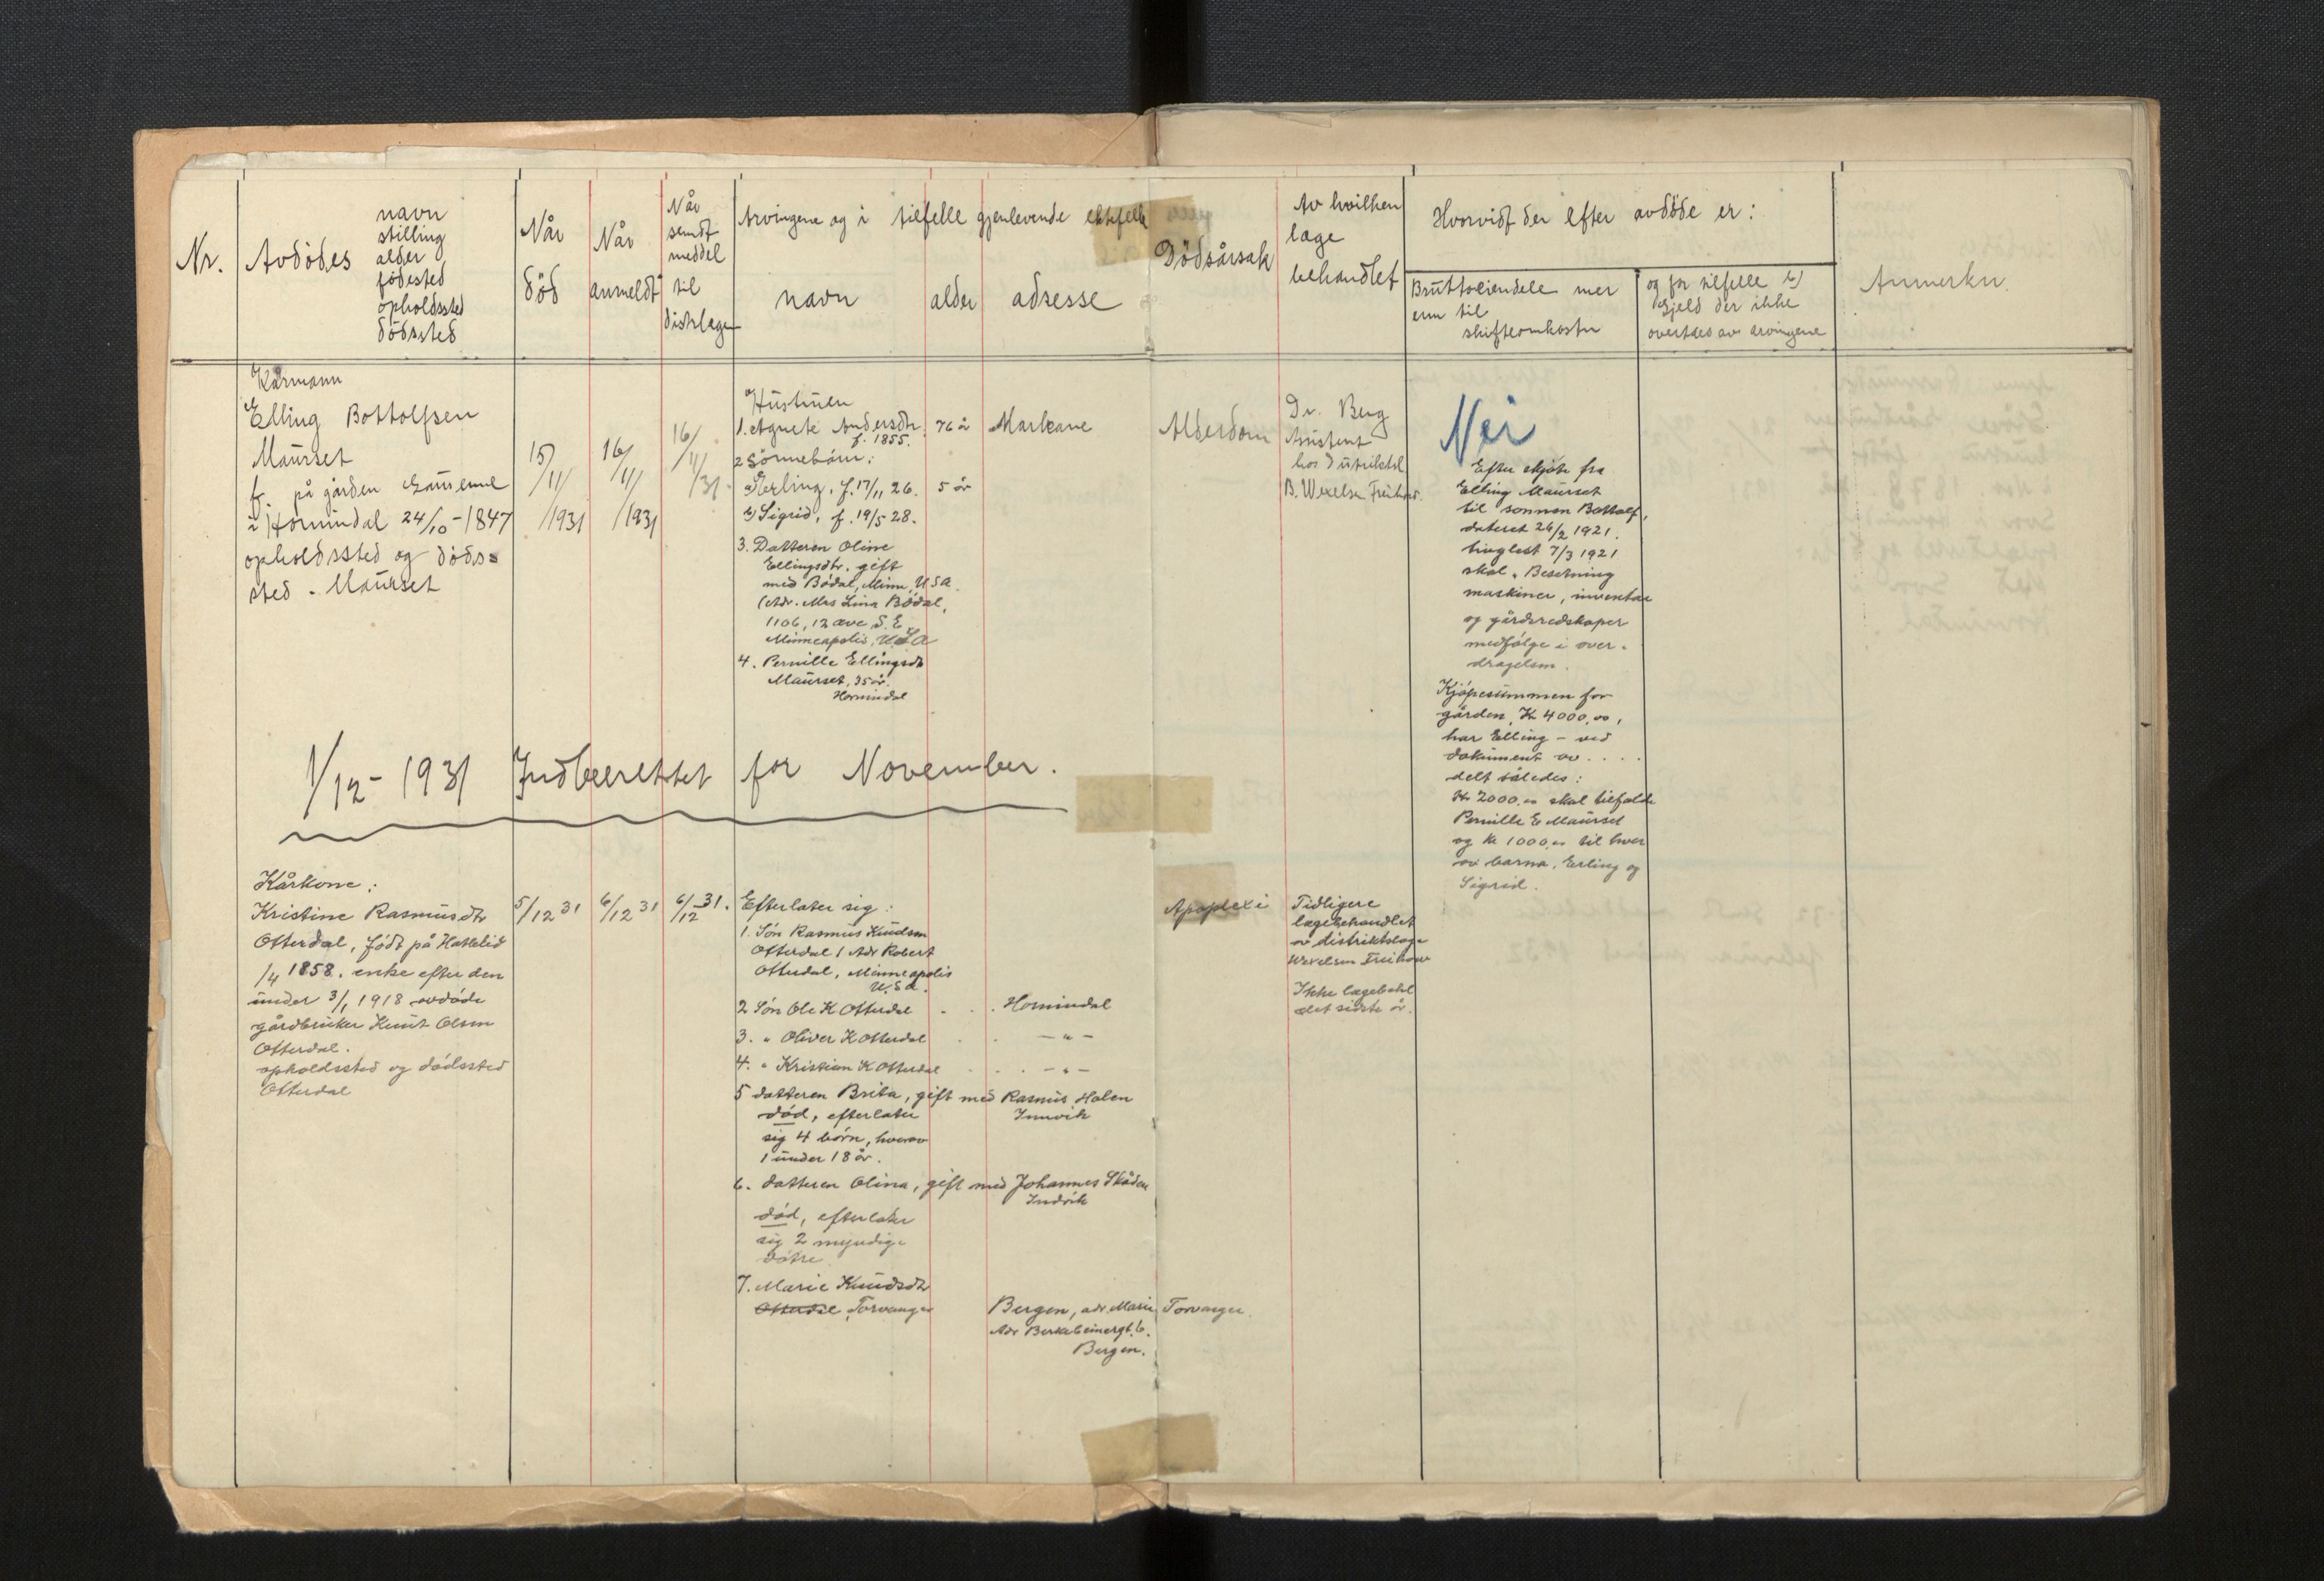 Nr.
Avdödes
navn
stilling
alder
födested
opholdssted
dödssted
Når
död
Når
anmeldt
Når
sendt
meddel
til
distrlæge
Arvingene og i tilfelle gjenlevende ektefelle
navn
alder
adresse
Dödsårsak
Av hvilken
læge
behandlet
Hvorvidt der efter avdöde er:
Bruttoeiendele mer
enn til
skifteomkostn
og for tilfelle b)
Gjeld der ikke
overtaes av arvingene
Anmerkn.
Kårmann
Elling Bottolfsen
Maurset
f. på gården
i Hornindal 24/10-1847
opholdssted og döds-
sted - Maurset
15/11/1931
16/11/1931
16/11/31.
Hustruen
1. Agnete Andersdtr.
f. 1855.
76 år
Markane
2 Sönnebarn:
a) Erling, f. 17/11 26.
5 år
b) Sigrid, f. 19/5 28.
3. Datteren Oline
Ellingsdtr. gift
med Bödal, Minn, USA
(Adr. Mrs Lina Bödal,
1106, 12 ave S.E
Minneapolis, USA
4. Pernille Ellingsdtr
Maurset, 35 år.
Hornindal
Alderdom
Dr. Berg
Assistent
hos distriktsl.
B. Wexelsen Freihow.
Nei
Efter skjöte fra
Elling Maurset
til sonnen Bottolf,
dateret 26/2 1921.
tinglest 7/3 1921
skal . Besetning
maskiner, inventar
og gårdsredskaper
medfölge i over-
dragelsen.
Kjöpesummen for
gården, Kr 4000,00,
har Elling - ved
dokument av . . . .
delt således:
Kr 2000,00 skal tilfalde
Pernille E Maurset
og kr 1000,00 til hver
av barna, Erling og
Sigrid.
1/12-1931 Indberettet for November.
Kårkone:
Kristine Rasmusdtr
Otterdal, födt på Hatlelid
/4 1858. enke efter den
under 3/1 1918 avdöde
gårdbruker Knut Olsen
Otterdal.
opholdssted og dödssted
Otterdal
5/12 31
6/12 31
6/12 31.
Efterlater sig:
1. Sön Rasmus Knudsen
Otterdal (Adr Robert
Otterdal, Minneapolis
U.S.A.
2 Sön Ole K Otterdal . . . Hornindal
3. " Oliver K Otterdal . . - " -
4. " Kristian K Otterdal . . . - " -
5 datteren Brita, gift med Rasmus Holen
död, efterlater
Innvik
sig 4 börn, hvorav
1 under 18 år.
6. datteren Olina, gift med Johannes Skåden
Indvik
död, efterlater
sig 2 myndige
dötre
7. Marie Knudsdtr
Otterdal, Torvanger
Bergen, adr. Marie Torvanger.
Adr Birkebeinergt. 6.
Bergen.
Apoplexi
Tidligere
lægebehandlet
av distriktslæge
Wexelsen Freihow
Ikke lægebehl
det sidste år.